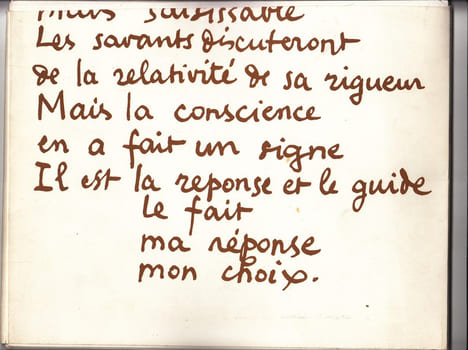 mais saisissable
Les savants discuteront
de la relativité de sa rigueur
Mais la conscience
en a fait un signe
Il est la reponse et le guide
le fait
ma réponse
mon choix.